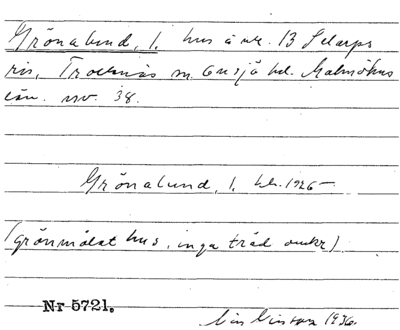 Grönalund, 1. hus å nr. 13 Selarps
ris, Trollenäs sn. Onsjö hd. Malmöhus
län. nv. 38.
Grönalund, 1. bb. 1926
(grönmålat hus, inga träd omkr)
Nr 5721.
1936.